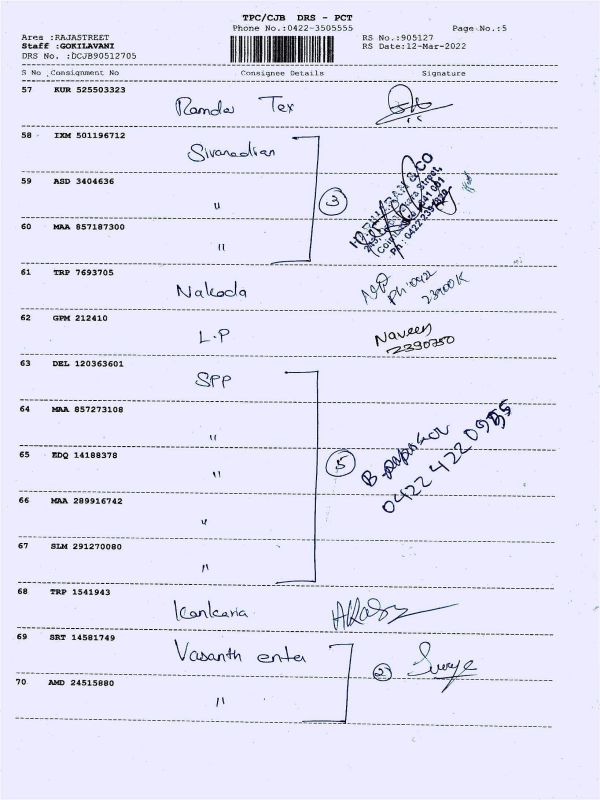 TPC/CJB DRS - PCT
Phone No.:0422-3505555 Page No.:5
Area :RAJASTREET RS No.:905127
Staff :GOKILAVANI RS Date:12-Mar-2022
DRS No. :DCJB90512705
S No Consignment No Consignee Details Signature
57 KUR 525503323
Ramdev Tex
58 IXM 501196712
Sivanadian
59 ASD 3404636
" 3
60 MAA 857187300
"
& CO
61 TRP 7693705
Nakoda
Ph:0422
62 GPM 212410
L.P Naveen
2390750
63 DEL 120363601
SPP
64 MAA 857273108
"
65 EDQ 14188378
" 5
0422 422
66 MAA 289916742
"
67 SLM 291270080
"
68 TRP 1541943
Kankaria
69 SRT 14581749
Vasanth enter 2 Surya
70 AMD 24515880
"